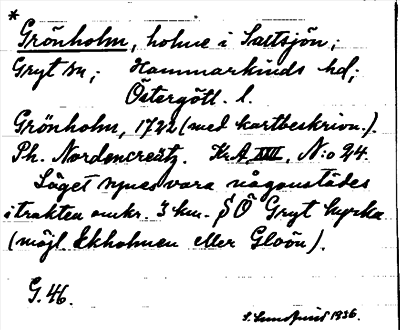 *
Grönholm, holme i Saltsjön;
Gryt sn; Hammarkinds hd;
Östergötl. l.
Grönholm, 1722 (med kartbeskrivn.).
Ph. Nordencreutz. Kr.A. XVII, N:o 24.
Läget synes vara någonstädes
i trakten omkr. 3 km. S Ö Gryt kyrka
(möjl. Ekholmen eller Gloön).
G. 46.
1936